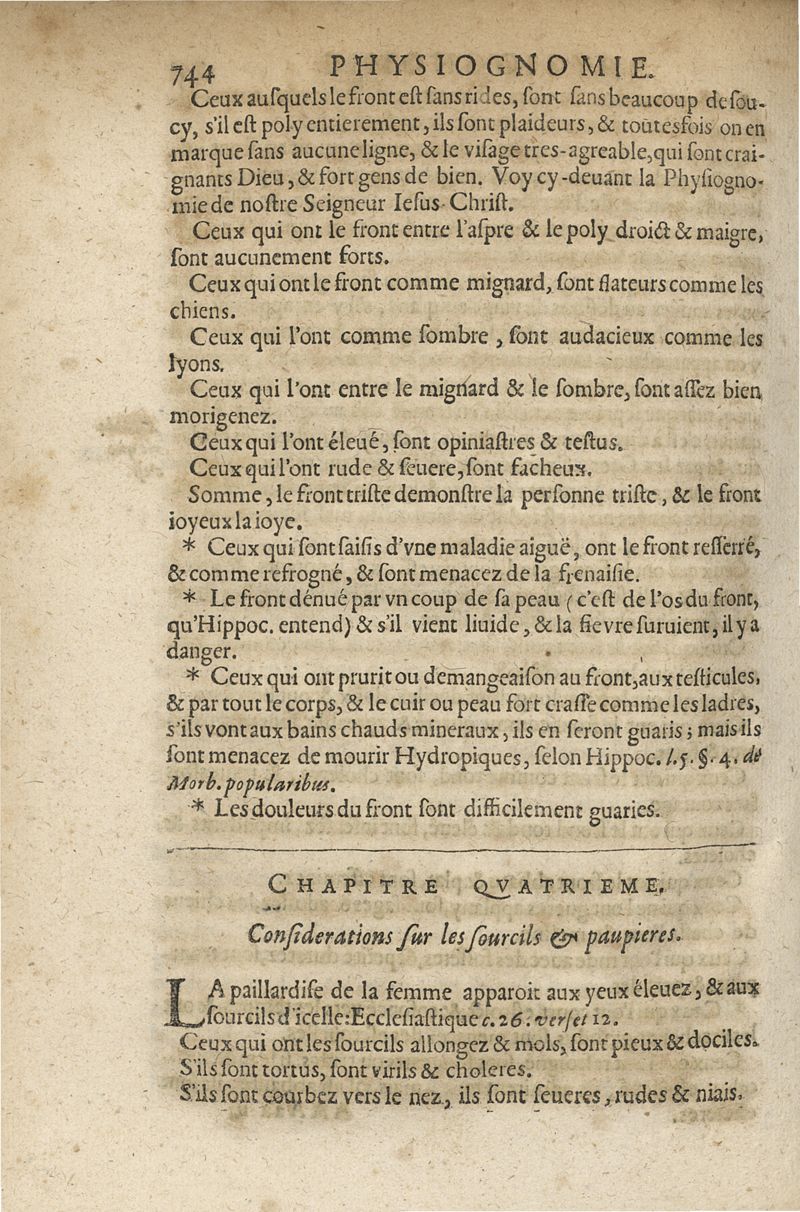 744 PHYSIOGNOMIE.
Ceux auſquels le front eſt ſans rides, ſont ſans beaucoup de ſou-
cy, s'il eſt poly entierement, ils ſont plaideurs, & toutesfois on en
marque ſans aucune ligne, & le viſage tres-agreable, qui ſont crai-
gnants Dieu, & fort gens de bien. Voy cy-deuant la Phyſiogno-
mie de noſtre Seigneur Ieſus-Chriſt.
Ceux qui ont le front entre l'aſpre & le poly droict & maigre,
ſont aucunement forts.
Ceux qui ont le front comme mignard, ſont flateurs comme les
chiens.
Ceux qui l'ont comme ſombre, ſont audacieux comme les
lyons.
Ceux qui l'ont entre le mignard & le ſombre, ſont aſſez bien
morigenez.
Ceux qui l'ont éleué, ſont opiniaſtres & teſtus.
Ceux qui l'ont rude & ſeuere, ſont facheux.
Somme, le front triſte demonſtre la perſonne triſte, & le front
ioyeux la ioye.
* Ceux qui ſont ſaiſis d'vne maladie aiguë, ont le front reſſerré,
& comme refrogné, & ſont menacez de la frenaiſie.
* Le front dénué par vn coup de ſa peau (c'eſt de l'os du front,
qu'Hippoc. entend) & s'il vient liuide, & la fievre ſuruient, il y a
danger.
* Ceux qui ont prurit ou demangeaiſon au front, aux teſticules,
& par tout le corps, & le cuir ou peau fort craſſe comme les ladres,
s'ils vont aux bains chauds mineraux, ils en ſeront guaris; mais ils
ſont menacez de mourir Hydropiques, ſelon Hippoc. l. 5. §. 4. de
Morb. popularibus.
* Les douleurs du front ſont difficilement guaries.
CHAPITRE QVATRIEME.
Conſiderations ſur les ſourcils & paupieres.
LA paillardiſe de la femme apparoit aux yeux éleuez, & aux
ſourcils d'icelle: Eccleſiaſtique c. 26. verſet 12.
Ceux qui ont les ſourcils allongez & mols, ſont pieux & dociles.
S'ils ſont tortus, ſont virils & choleres.
S'ils ſont courbez vers le nez, ils ſont ſeueres, rudes & niais.